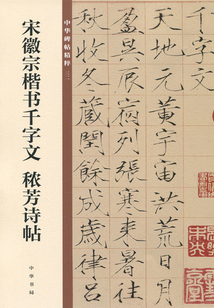 天地元黃宇宙洪荒日月
盈昃辰宿列張寒來暑往
秋收冬藏閏餘成歲律呂
中华碑帖精粹
宋徽宗楷书千字文 秾芳诗帖
中华书局